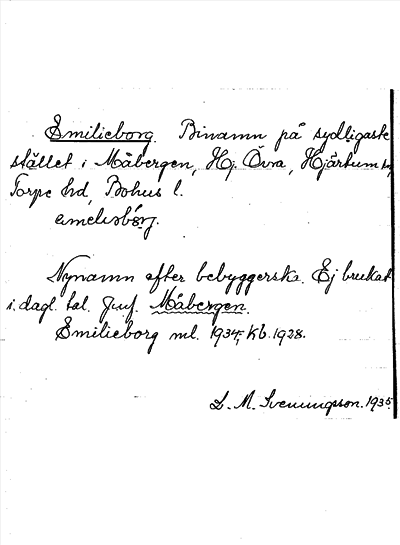 Emilieborg. Binamn på sydligaste
stället i Måbergen, Hj. Övra, Hjärtum sn,
Torpe hd, Bohus l.
emelisbörj.
Nynamn efter bebyggerska. Ej brukat
i dagl. tal. Jmf. Måbergen.
Emilieborg ml. 1934, kb. 1928.
L. M. Svenungsson. 1935